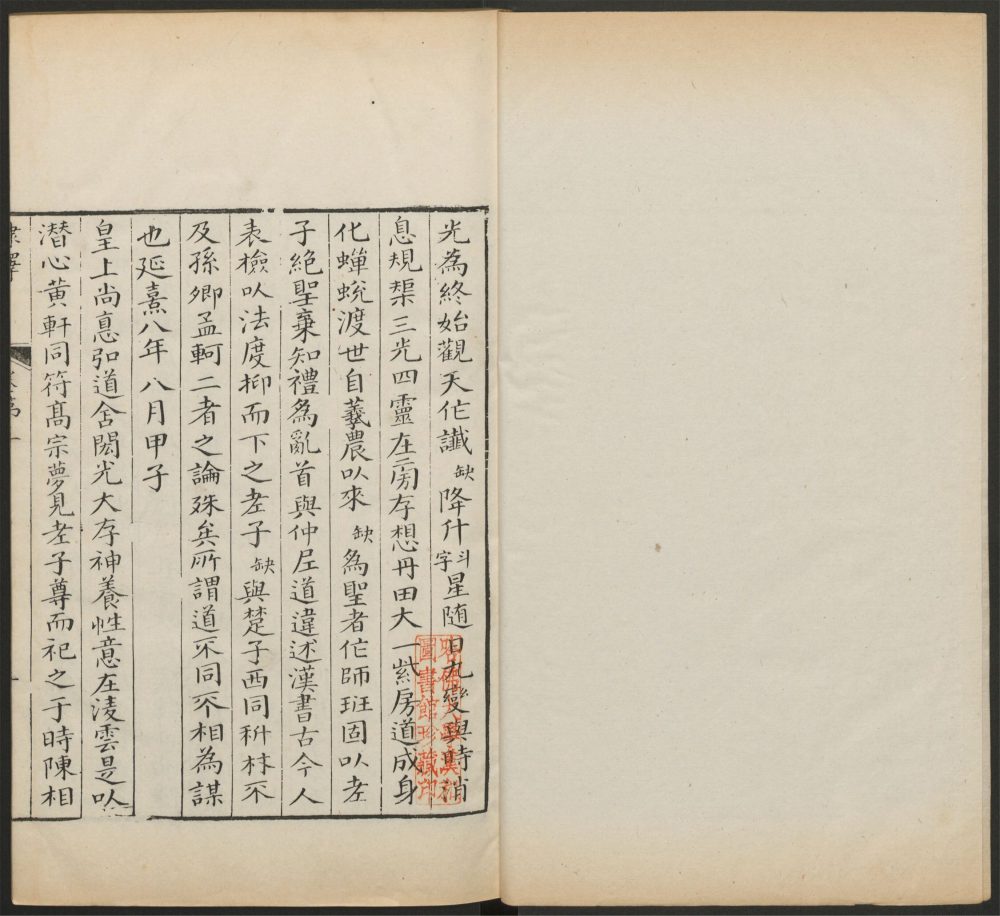 光為終始觀天作讖缺降什斗字星隨日九變與時消
息規榘三光四靈在旁存想丹田大一紫房道成身
化蟬蛻渡世自羲農以來缺為聖者作師班固以老
子絕聖棄知禮為亂首與仲尼道違述漢書古今人
表檢以法度抑而下之老子缺與楚子西同科材不
及孫卿孟軻二者之論殊矣所謂道不同不相為謀
也延熹八年八月甲子
皇上尚悳弘道含閎光大存神養性意在淩雲是以
潛心黃軒同符高宗夢見老子尊而祀之于時陳相
隸釋
卷第一
圖書館珍藏印